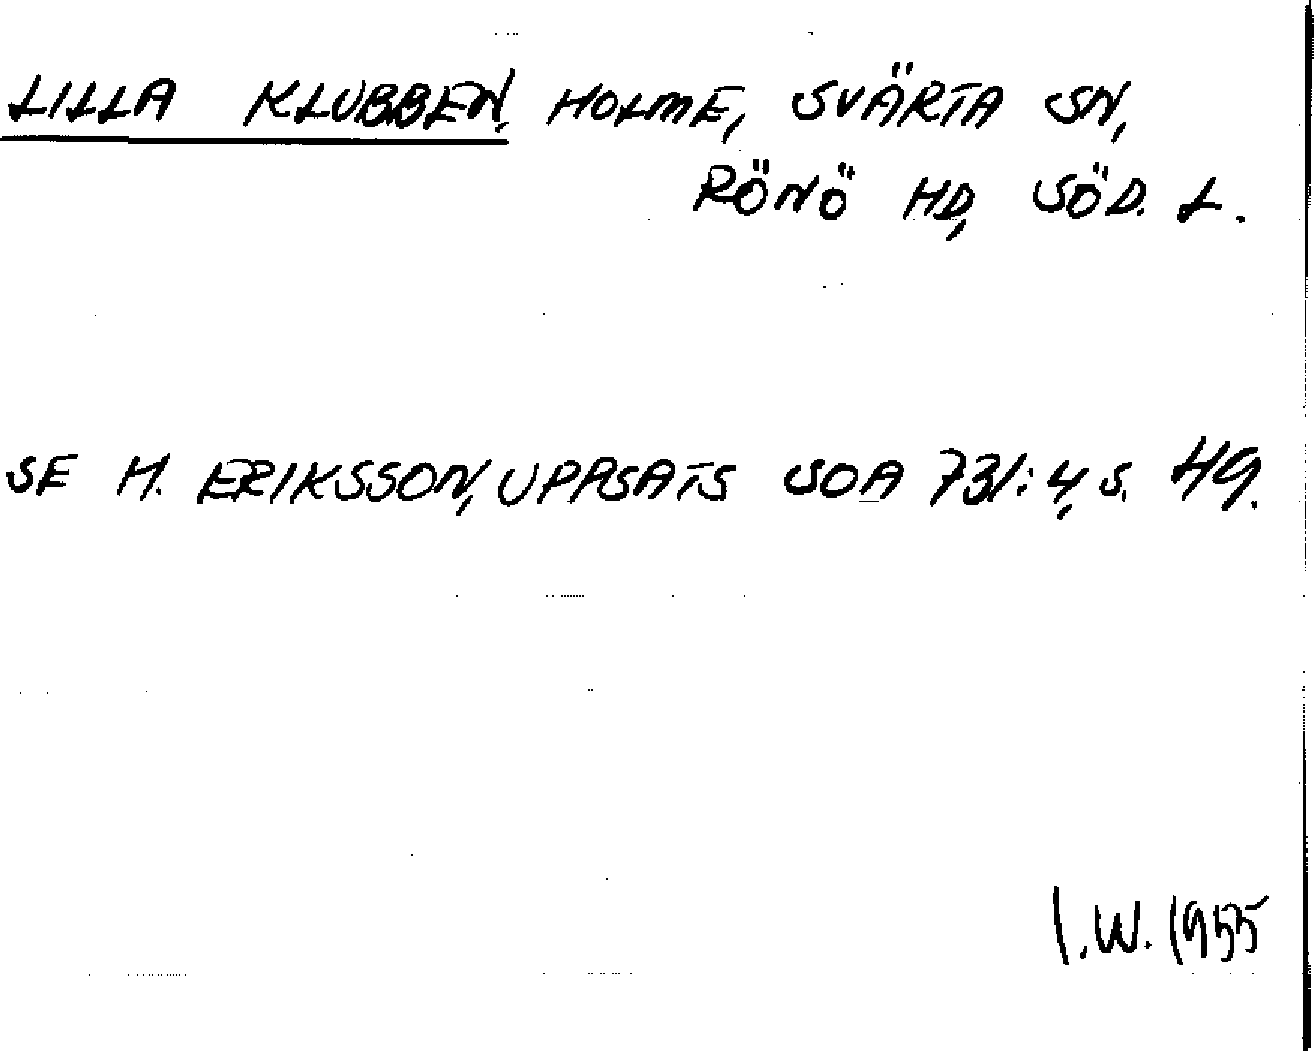 LILLA KLUBBEN, HOLME, SVÄRTA SN,
RÖNÖ HD, SÖD. L.
SE H. ERIKSSON, UPPSATS SOA 731:4, S. 49.
I.W. 1955